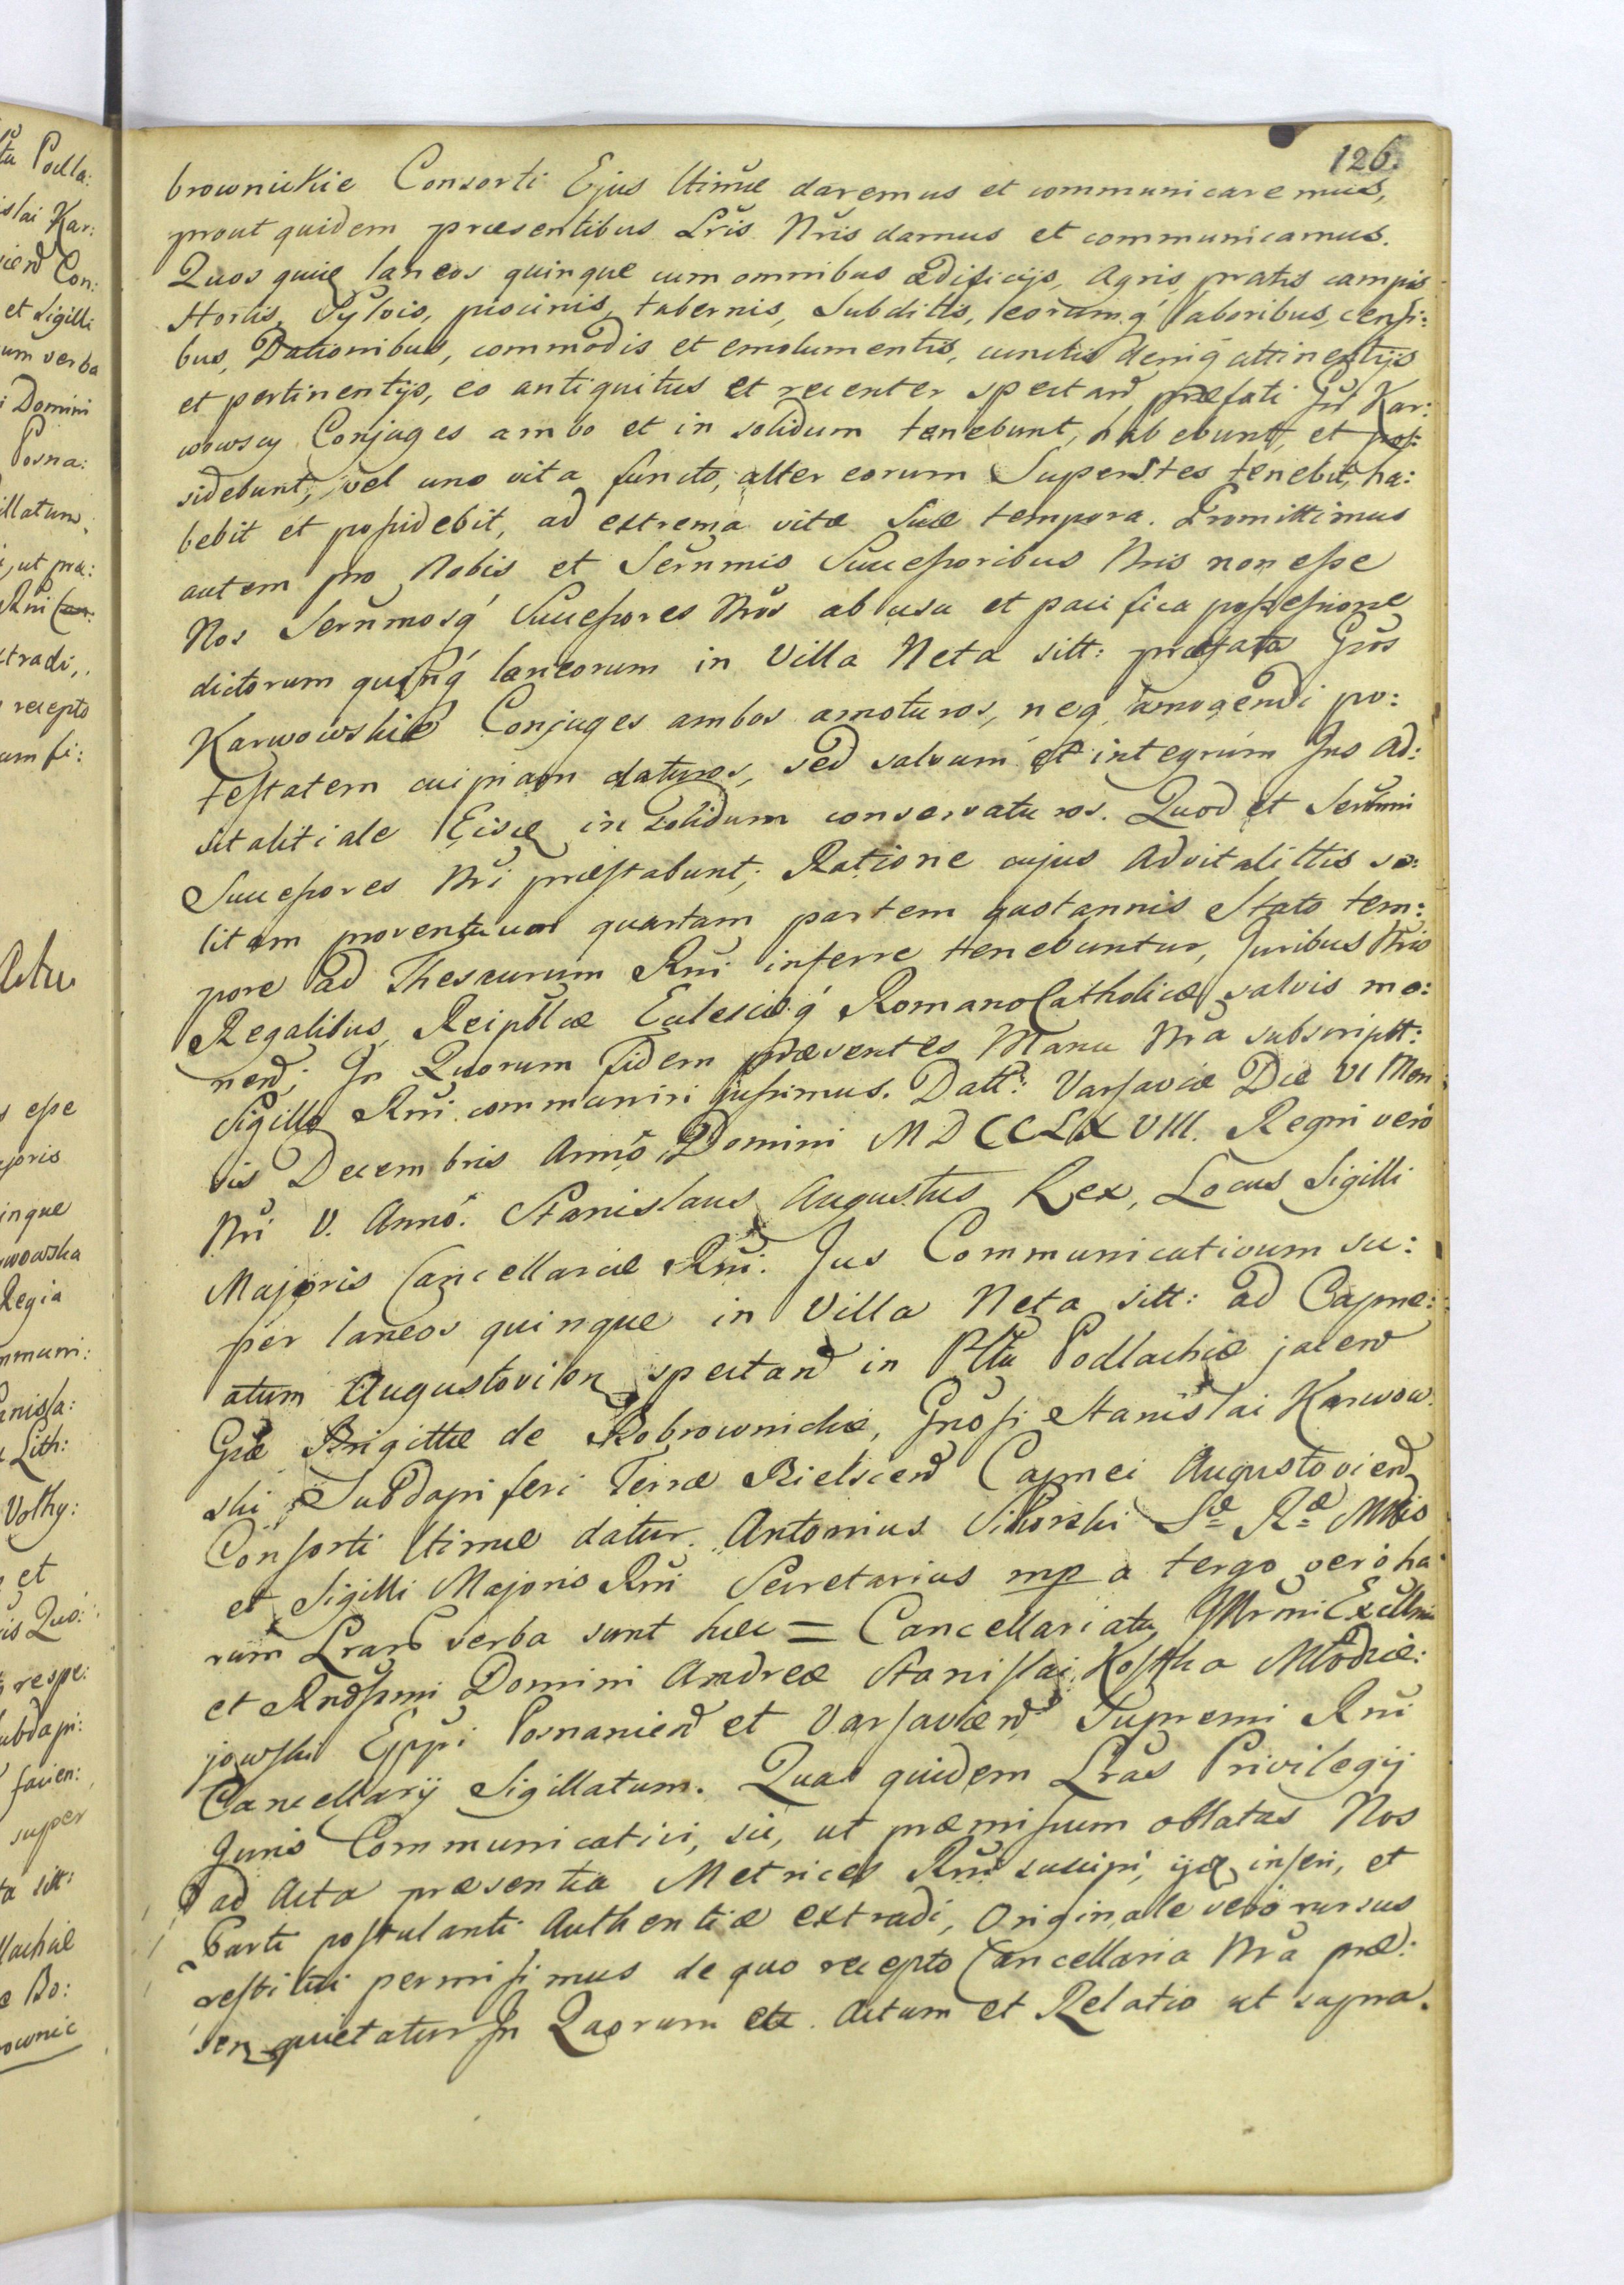 126.
brownickie Consorti Ejus ltimæ daremus et communicaremus,
prout quidem præsentibus Lris Nris damus et communicamus.
Quos quidem laneos quinque cum omnibus ædificijs, Agris, pratis campis
Hortis, Sylvis, piscinis, tabernis, Subditis, eorumq́ laboribus, censi:
bus, Dationibus, commodis et emolumentis, cunctis deniq́ attinentijs
et pertinentijs, eo antiquitus et recenter spectan, præfati Gsi Kar:
wowscy Conjuges ambo et in solidum tenebunt, habebunt, et pos:
sidebunt, vel uno vita functo, alter eorum Superstes tenebit, ha:
bebit et possidebit, ad extrema vitæ suæ tempora. Promittimus
autem pro Nobis et Sernmis Successoribus Nris non esse
Nos Sernmosq́ Successores Nros ab usu et pacifica possessione
dictorum quinq́ laneorum in Villa Neta sitt: præfatos Gsos
Karwowskie Conjuges ambos amoturos, neq́ amovendi po:
testatem cuipiam daturos, sed salvum et integrum Jus Ad:
vitalitiale Eisdem in solidum conservaturos. Quod et Sernmi
Successores Nri præstabunt; Ratione cujus Advitalittis so:
litam proventuum quartam partem quotannis Stato tem:
pore ad Thesaurum Rni inferre tenebuntur, Juribus Nris
Regalibus, Reipblcæ Eclesiæq́ Romano Catholicæ salvis ma:
nen; In Quorum Fidem præsentes Manu Nra subscriptt:
Sigillo Rni communiri jussimus. Datt: Varsaviæ Die VI Men
sis Decembris Anno Domini MDCCLXVIII. Regni vero
Nri V. Anno. Stanislaus Augustus Rex, Locus Sigilli
Majoris Cancellariæ Rni. Jus Communicativum su:
per laneos quinque in Villa Neta sitt: ad Capne:
atum Augustovien spectan in Pltu Podlachiæ jacen
Gsæ Brigittæ de Bobrownickie, Gnosi Stanislai Karwow
ski Subdapiferi Terræ Bielscen Capnei Augustovien
Consorti ltimæ datur. Antonius Sikorski Sæ Ræ Mtis
et Sigilli Majoris Rni Secretarius mp a tergo vero ha
rum Lrarum verba sunt hæc = Cancellariatu Illrmi Excllmi
et Rndssmi Domini Andreæ Stanislai Kostka Młodzie:
jowski Eppi Posnanien et Varsavien Supremi Rni
Cancellarij Sigillatum. Quas quidem Lras Privilegij
Juris Communicativi, sic, ut præmissum oblatas Nos
ad Acta præsentia Metrices Rni suscipi, ijsdem inseri, et
Parti postulanti Authentice extradi, Originale vero rursus
restitui permisimus de quo recepto Cancellaria Nra præ:
sen quietatur. In Quorum etc. Actum et Relatio ut supra.